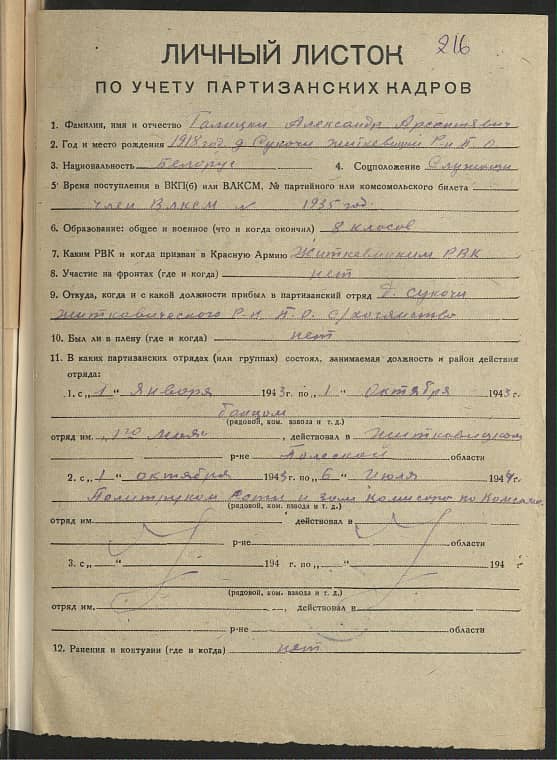 216
ЛИЧНЫЙ ЛИСТОК
ПО УЧЕТУ ПАРТИЗАНСКИХ КАДРОВ
1. Фамилия, имя и отчество Галицки Александр Арсентьевич
2. Год и место рождения 1918 год д Сукочи Житкевицки Р-н П. О
3. Национальность Белорус 4. Соцположение Служищи
5. Время поступления в ВКП(б) или ВЛКСМ, № партийного или комсомольского билета
член ВЛКСМ с 1935 год.
6. Образование: общее и военное (что и когда окончил) 8 класов
7. Каким РВК и когда призван в Красную Армию Житкевицким РВК
8. Участие на фронтах (где и когда) нет
9. Откуда, когда и с какой должности прибыл в партизанский отряд Д. Сукочи
Житковического Р-н П. О. С/хозяйство
10. Был ли в плену (где и когда) нет
11. В каких партизанских отрядах (или группах) состоял, занимаемая должность и район действия
отряда:
1. с „1" Января 1943 г. по „1" Октября 1943 г.
бойцом
(рядовой, ком. взвода и т. д.)
отряд им. 1го мая, действовал в Житковицком
р-не Полесской области
2. с „1" октября 1943 г. по „6" Июля 1944 г.
Политруком роты и зам комисара по Комсомо.
(рядовой, ком. взвода и т. д.)
отряд им. действовал в
р-не области
3. с „ " 194 г. по „ " 194 г
(рядовой, ком. взвода и т. д.)
отряд им. , действовал в
р-не области
12. Ранения и контузии (где и когда) нет